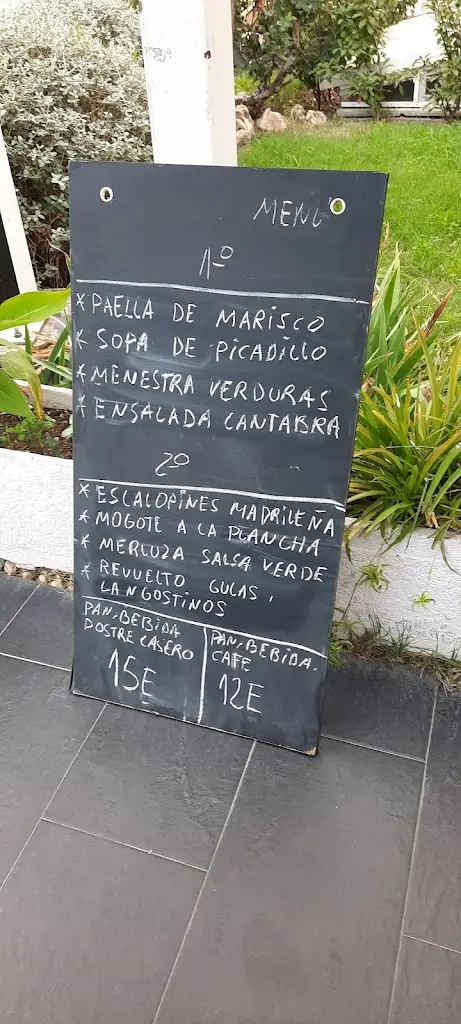 MENÚ
1º
* PAELLA DE MARISCO
* SOPA DE PICADILLO
* MENESTRA VERDURAS
* ENSALADA CANTABRA
2º
* ESCALOPINES MADRILEÑA
* MOGOTE A LA PLANCHA
* MERLUZA SALSA VERDE
* REVUELTO GULAS,
LANGOSTINOS
PAN, BEBIDA
POSTRE CASERO
15E
PAN, BEBIDA.
CAFE
12E